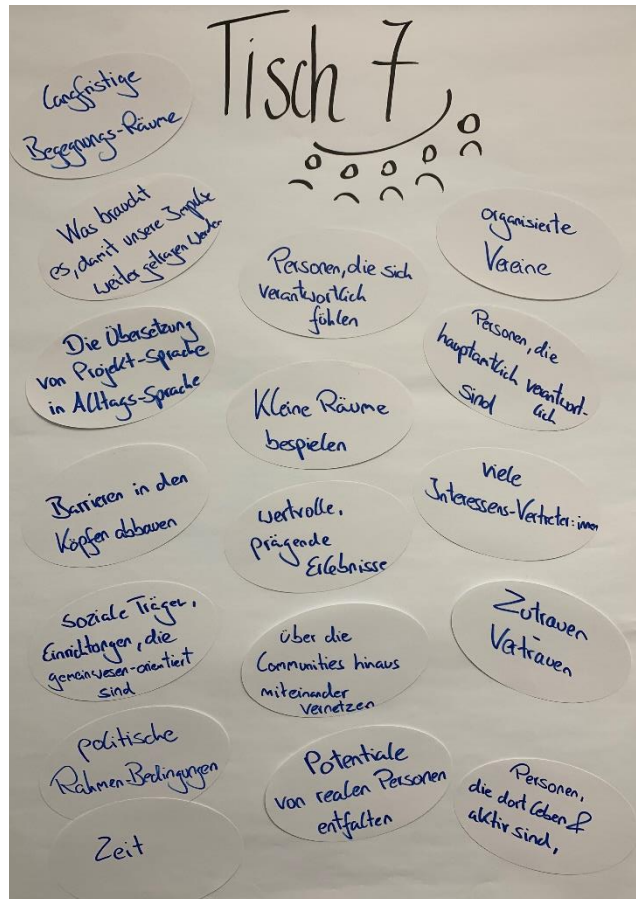 Tisch 7
Langfristige
Begegnungs-Räume
Was braucht
es, damit unsere Impulse
weiter getragen werden
Die Übersetzung
von Projekt-Sprache
in Alltags-Sprache
Barrieren in den
Köpfen abbauen
soziale Träger,
Einrichtungen, die
gemeinwesen-orientiert
sind
politische
Rahmen-Bedingungen
Zeit
Personen, die sich
verantwortlich
fühlen
Kleine Räume
bespielen
wertvolle,
prägende
Erlebnisse
über die
Communities hinaus
miteinander
vernetzen
Potentiale
von realen Personen
entfalten
organisierte
Vereine
Personen, die
hauptamtlich verantwort-
lich
sind
viele
Interessens-Vertreter:innen
Zutrauen
-
Vertrauen
Personen,
die dort leben &
aktiv sind,